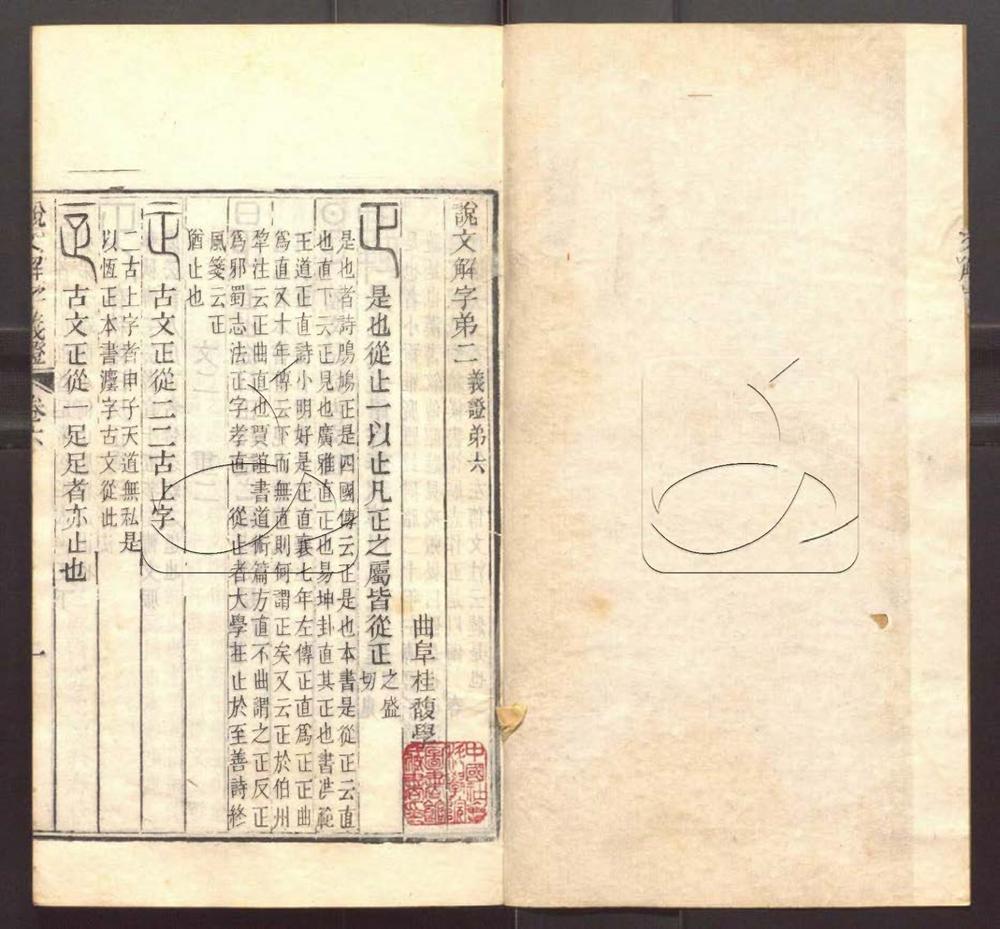 說文解字弟二 義證弟六
曲阜桂馥學
是也從止一以止凡正之屬皆從正之盛切
是也者詩鳲鳩正是四國傳云正是也本書是從正云直
也直下云正見也廣雅直正也易坤卦直其正也書洪範
王道正直詩小明好是正直襄七年左傳正直爲正正曲
爲直又十年傳云下而無直則何謂正矣又云正於伯州
犂注云正曲直也賈誼書道術篇方直不曲謂之正反正
爲邪蜀志法正字孝直 從止者大學在止於至善詩終
風箋云正
猶止也
古文正從二二古上字
二古上字者申子天道無私是
以恆正本書灋字古文從此
古文正從一足足者亦止也
說文解字義證 卷六 一